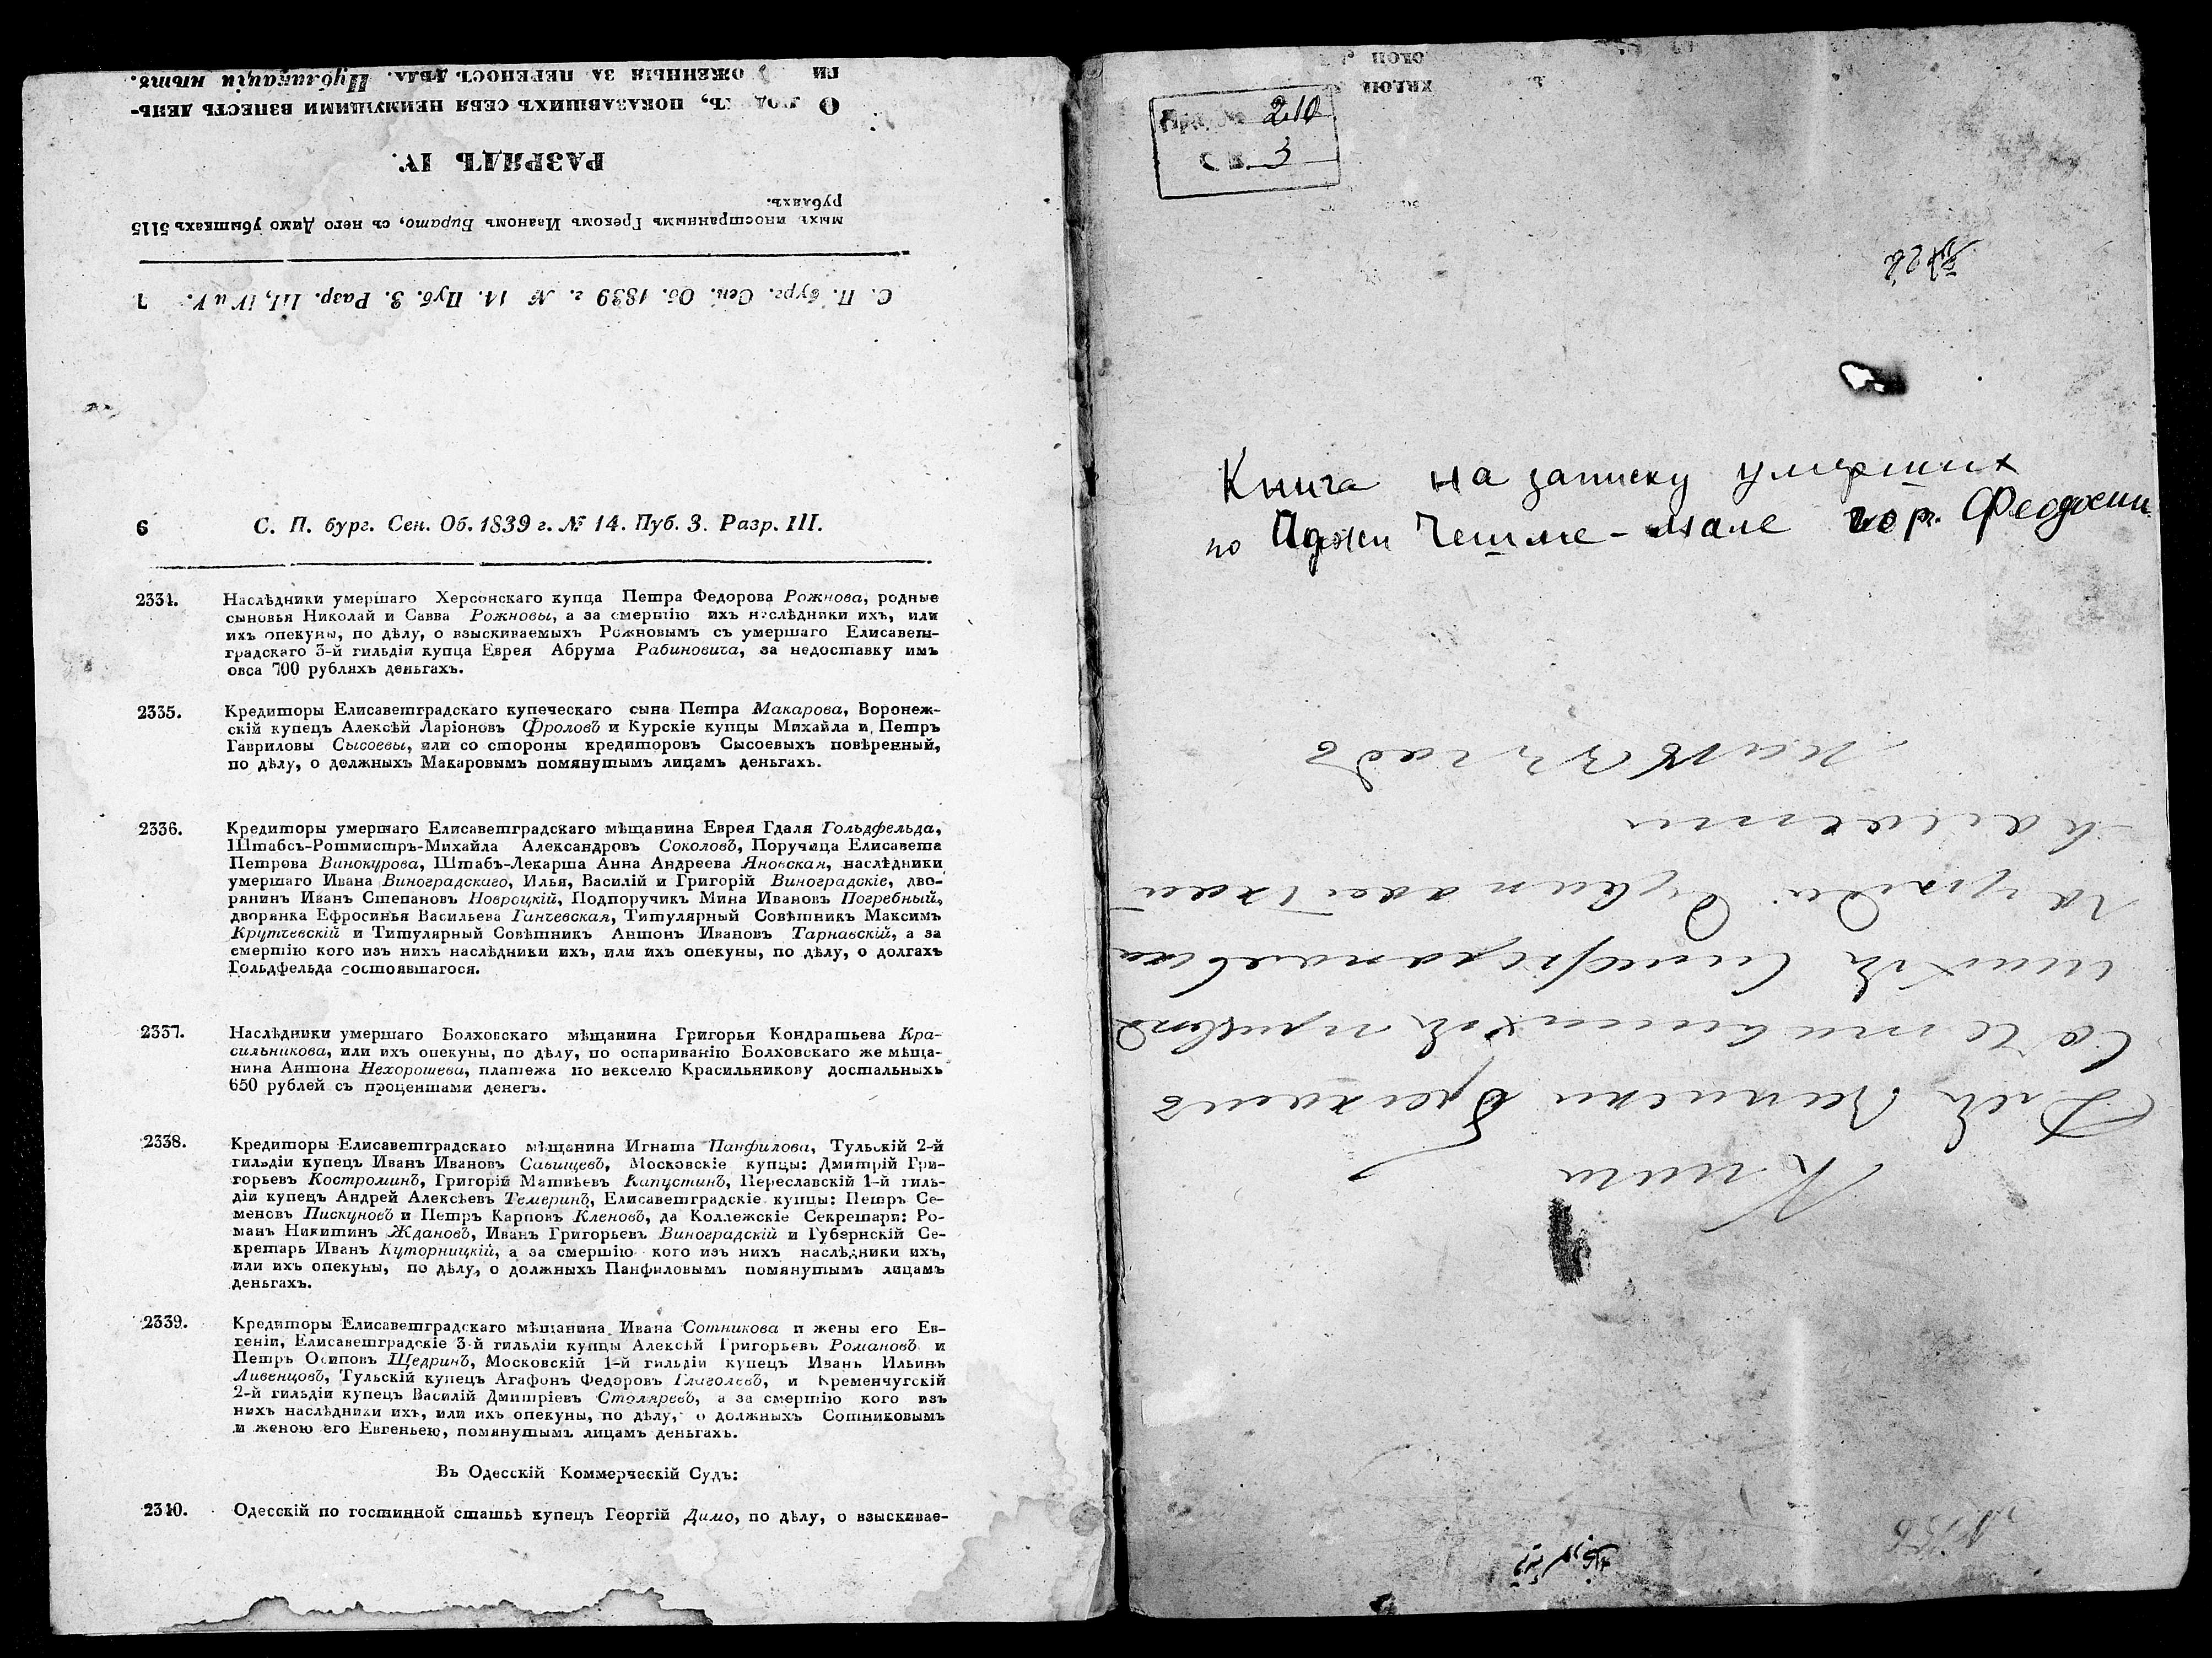 О людяхъ, показавшихъ себя неимущими взнесть день-
ги положенныя за переносъ дѣла. Публикацiи нѣтъ.
РАЗРЯДЪ IV.
мыхъ иностраннымъ Грекомъ Иваномъ Вирато, съ него Димо убышкахъ 5115
рубляхъ.
С. П. бург. Сен. Об. 1839 г. № 14. Пуб. 3. Разр. III, IV и V. 7
6 С. П. бург. Сен. Об. 1839 г. № 14. Пуб. 3. Разр. III.
2334. Наслѣдники умершаго Херсонскаго купца Петра Федорова Рожнова, родные
сыновья Николай и Савва Рожновы, а за смертiю ихъ наслѣдники ихъ, или
ихъ опекуны, по дѣлу, о взыскиваемыхъ Рожновымъ съ умершаго Елисавет-
градскаго 3-й гильдiи купца Еврея Абрума Рабиновича, за недоставку имъ
овса 700 рубляхъ деньгахъ.
2335. Кредиторы Елисаветградскаго купеческаго сына Петра Макарова, Воронеж-
скiй купецъ Алексѣй Ларiоновъ Фроловъ и Курскiе купцы Михайла и Петръ
Гавриловы Сысоевы, или со стороны кредиторовъ Сысоевыхъ повѣренный,
по дѣлу, о должныхъ Макаровымъ помянутымъ лицамъ деньгахъ.
2336. Кредиторы умершаго Елисаветградскаго мѣщанина Еврея Гдаля Гольдфельда,
Штабсъ-Ротмистръ-Михайла Александровъ Соколовъ, Поручица Елисавета
Петрова Винокурова, Штабъ-Лекарша Анна Андреева Яновская, наслѣдники
умершаго Ивана Виноградскаго, Илья, Василiй и Григорiй Виноградскiе, дво-
рянинъ Иванъ Степановъ Новроцкiй, Подпоручикъ Мина Ивановъ Погребный,
дворянка Ефросинья Васильева Ганчевская, Титулярный Совѣтникъ Максимъ
Крутчевскiй и Титулярный Совѣтникъ Антонъ Ивановъ Тарнавскiй, а за
смертiю кого изъ нихъ наслѣдники ихъ, или ихъ опекуны, по дѣлу, о долгахъ
Гольдфельда состоявшагося.
2337. Наслѣдники умершаго Болховскаго мѣщанина Григорья Кондратьева Кра-
сильникова, или ихъ опекуны, по дѣлу, по оспариванiю Болховскаго же мѣща-
нина Антона Нехорошева, платежа по векселю Красильникову достальныхъ
650 рублей съ процентами денегъ.
2338. Кредиторы Елисаветградскаго мѣщанина Игната Панфилова, Тульскiй 2-й
гильдiи купецъ Иванъ Ивановъ Савищевъ, Московскiе купцы: Дмитрiй Гри-
горьевъ Костроминъ, Григорiй Матвѣевъ Капустинъ, Переславскiй 1-й гиль-
дiи купецъ Андрей Алексѣевъ Темеринъ, Елисаветградскiе купцы: Петръ Се-
меновъ Пискуновъ и Петръ Карповъ Кленовъ, да Коллежскiе Секретари: Ро-
манъ Никитинъ Ждановъ, Иванъ Григорьевъ Виноградскiй и Губернскiй Се-
кретарь Иванъ Куторницкiй, а за смертiю кого изъ нихъ наслѣдники ихъ,
или ихъ опекуны, по дѣлу, о должныхъ Панфиловымъ помянутымъ лицамъ
деньгахъ.
2339. Кредиторы Елисаветградскаго мѣщанина Ивана Сотникова и жены его Ев-
генiи, Елисаветградскiе 3-й гильдiи купцы Алексѣй Григорьевъ Романовъ и
Петръ Осиповъ Щедринъ, Московскiй 1-й гильдiи купецъ Иванъ Ильинъ
Ливенцовъ, Тульскiй купецъ Агафонъ Федоровъ Глаголевъ, и Кременчугскiй
2-й гильдiи купецъ Василiй Дмитрiевъ Столяревъ, а за смертiю кого изъ
нихъ наслѣдники ихъ, или ихъ опекуны, по дѣлу, о должныхъ Сотниковымъ
и женою его Евгеньею, помянутымъ лицамъ деньгахъ.
Въ Одесскiй Коммерческiй Судъ:
2340. Одесскiй по гостинной статьѣ купецъ Георгiй Димо, по дѣлу, о взыскивае-
210
Св. 3
Книга на записку умерших
по Аджи Чешме-мале гор. Феодосии
Книга
Для записки бракамъ